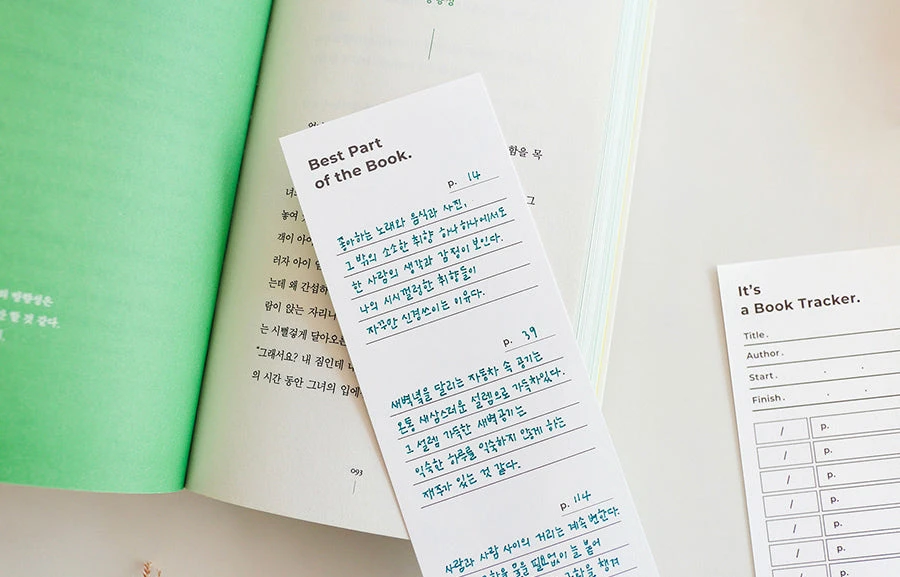 함을 목
너
그
놓여
객이 아이
러자 아이
는데 왜 간섭하
람이 앉는 자리나
는 시뻘겋게 달아오른
"그래서요? 내 짐인데
의 시간 동안 그녀의 입에
093
Best Part
of the Book.
p. 14
좋아하는 노래와 음식과 사진,
그 밖의 소소한 취향 하나하나에서도
한 사람의 생각과 감정이 보인다.
나의 시시껄렁한 취향들이
자꾸만 신경쓰이는 이유다.
p. 39
새벽녘을 달리는 자동차 속 공기는
온통 새삼스러운 설렘으로 가득차있다.
그 설렘 가득한 새벽공기는
익숙한 하루를 익숙하지 않게 하는
재주가 있는 것 같다.
p. 114
사람과 사람 사이의 거리는 계속 변한다.
물을 필요없이 늘 붙어
챙겨
It's
a Book Tracker.
Title.
Author.
Start. . .
Finish. . .
/ p.
/ p.
/ p.
/ p.
/ p.
/ p.